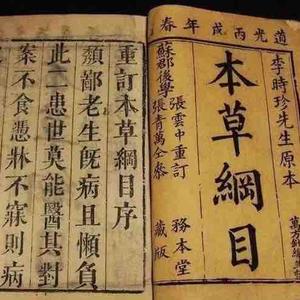 道光丙戌年春
李時珍先生原本
本草綱目
蘇郡後學
張雲中重訂
張青萬仝參
務本堂
藏版
重訂本草綱目序
頹鄙老生旣病且懶負
此二患世莫能醫其對
案不食憑牀不寐則病